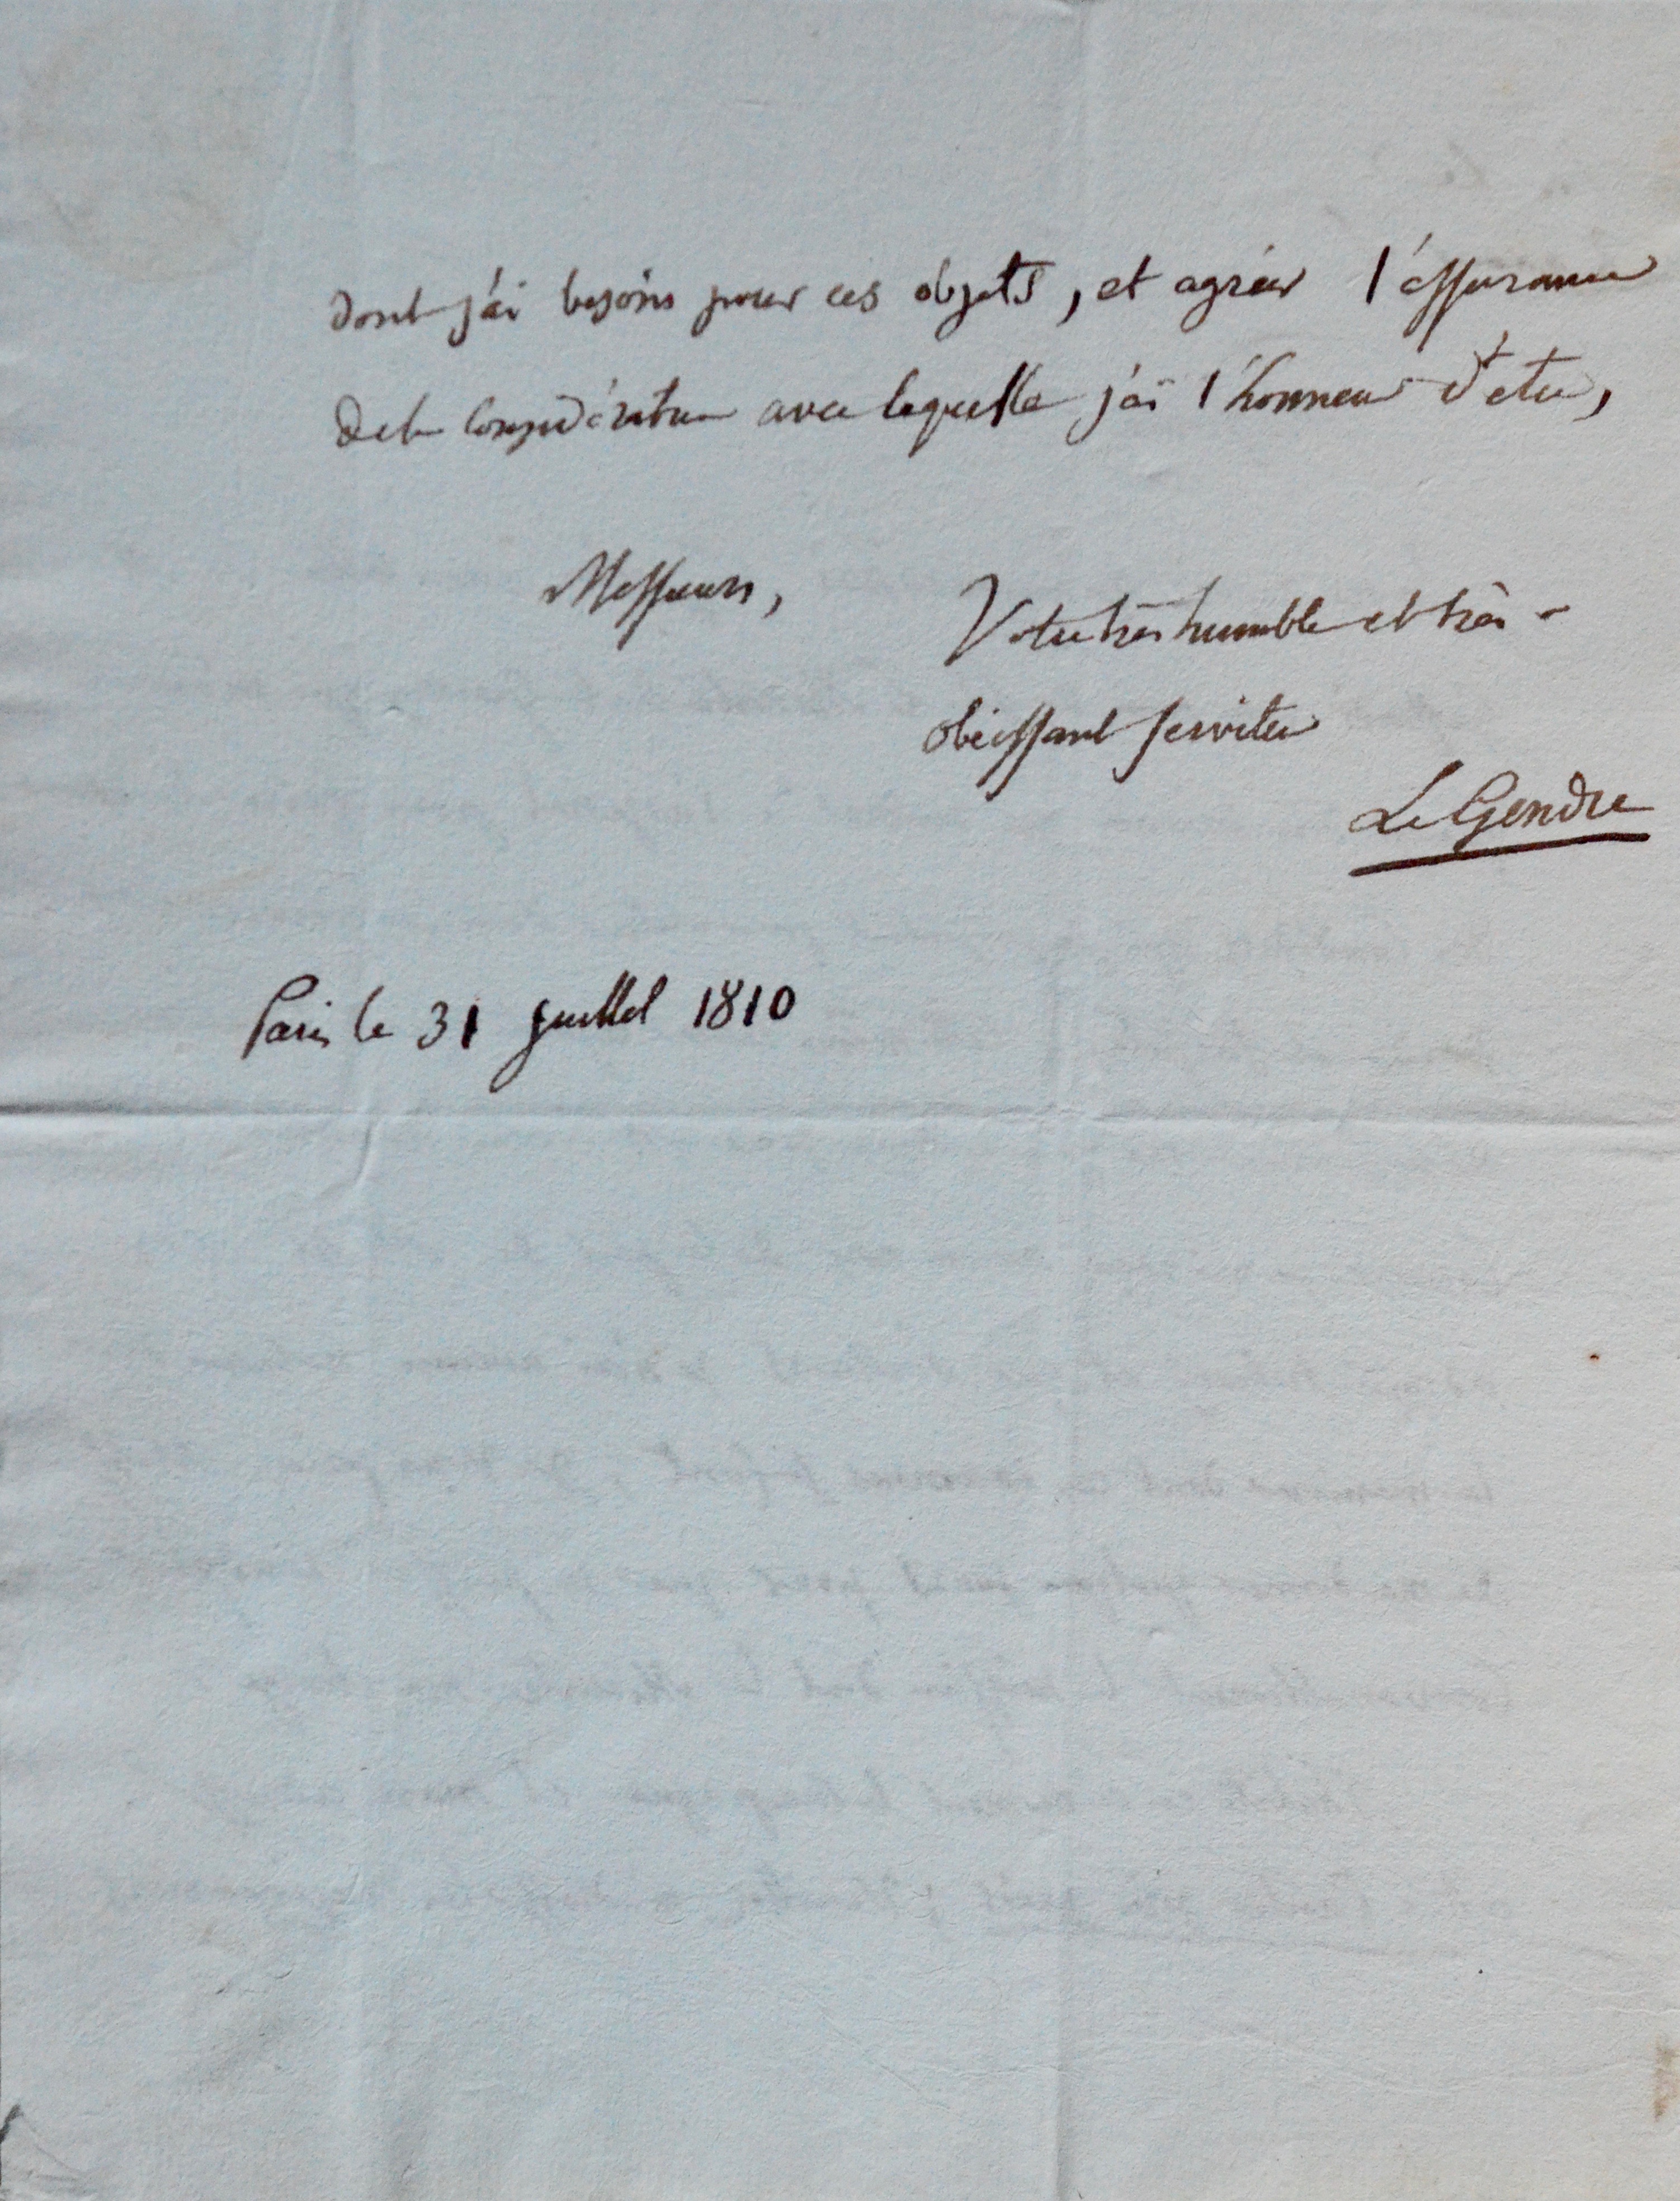 dont j'ai besoin pour ces objets, et agréer l'assurance
de la considération avec laquelle j'ai l'honneur d'etre,
Messieurs,
Votre très humble et très-
obéissant serviteur
LeGendre
Paris le 31 juillet 1810